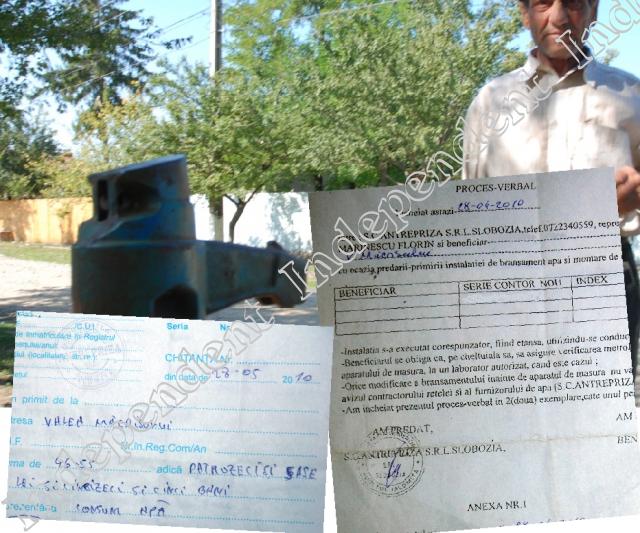 PROCES-VERBAL
Incheiat astazi 28-04-2010
S.C.ANTREPRIZA S.R.L.SLOBOZIA,telef.0722340559, repre
MARINESCU FLORIN si beneficiar
cu ocazia predarii-primirii instalatiei de bransament apa si montare de c
BENEFICIAR SERIE CONTOR NOU INDEX
-Instalatia s-a executat corespunzator, fiind etansa, utilizindu-se conduc
-Beneficiarul se obliga ca, pe cheltuiala sa, sa asigure verificarea metrol
aparatului de masura, la un laborator autorizat, cand este cazul ;
-Orice modificare a bransamentului inainte de aparatul de masura nu va
avizul contractorului retelei si al furnizorului de apa (S.C.ANTREPRIZ
-Am incheiat prezentul proces-verbal in 2(doua) exemplare,cate unul pe
AM PREDAT, AM
S.C.ANTREPRIZA S.R.L.SLOBOZIA, BEN
ANEXA NR.1
C.U.I. Seria Nr.
de inmatriculare in Registrul
CHITANTA Nr.
din data de 28-05 2010
m primit de la
resa VALEA MĂCRIȘULUI
I.F. Nr.în.Reg.Com/An
ma de 46-55 adică PATRUZECI ȘI ȘASE
LEI ȘI CINCIZECI ȘI CINCI BANI
prezentând CONSUM APĂ
Independent